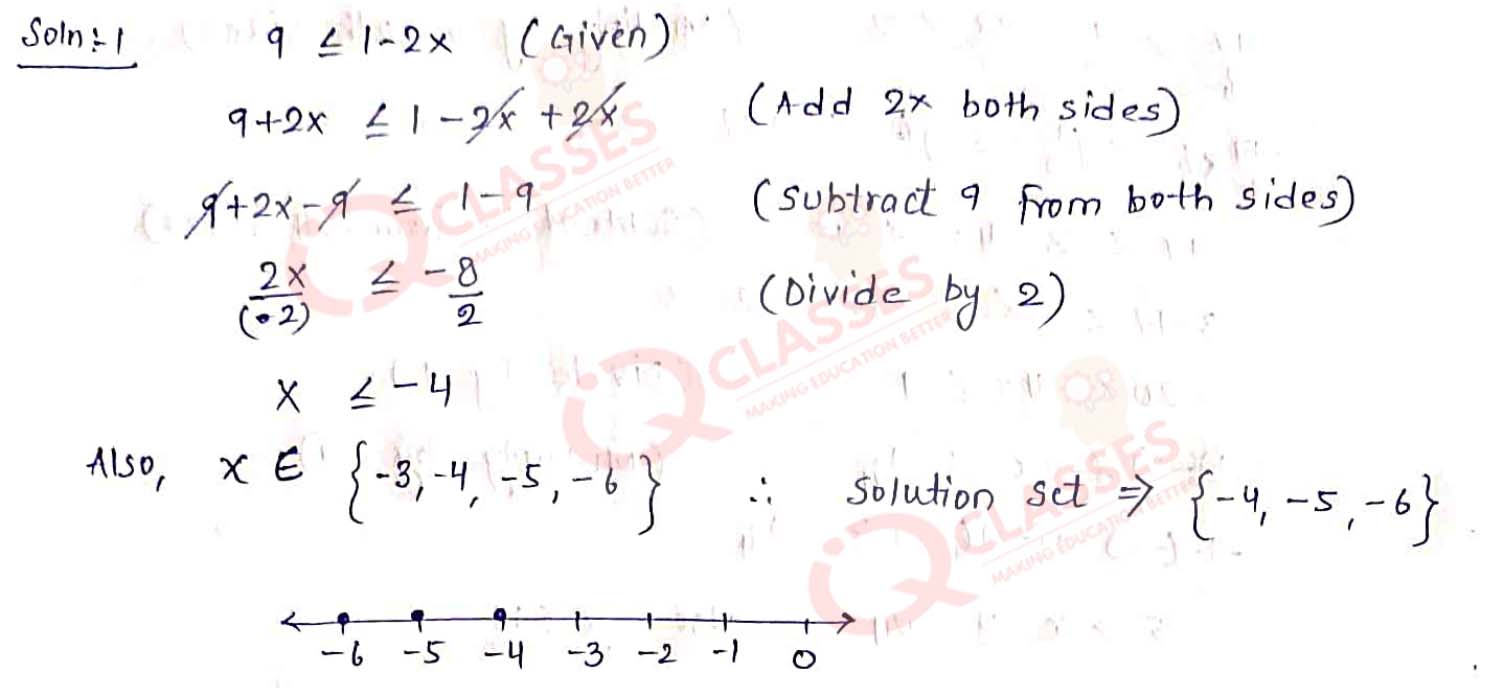 Soln:-1 9 ≤ 1-2x (Given)
9+2x ≤ 1-2x+2x (Add 2x both sides)
9+2x-9 ≤ 1-9 (Subtract 9 from both sides)
2x/(2) ≤ -8/2 (Divide by 2)
x ≤ -4
Also, x ∈ {-3, -4, -5, -6} ∴ Solution set ⇒ {-4, -5, -6}
-6 -5 -4 -3 -2 -1 0
IQ CLASSES
MAKING EDUCATION BETTER
IQ CLASSES
MAKING EDUCATION BETTER
IQ CLASSES
MAKING EDUCATION BETTER